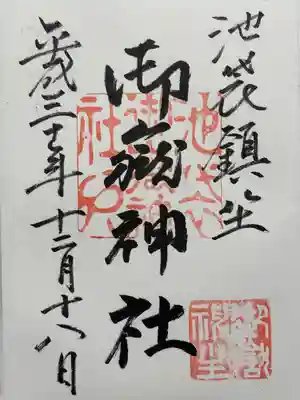 池袋鎮座
御嶽神社
平成三十年十二月十八日